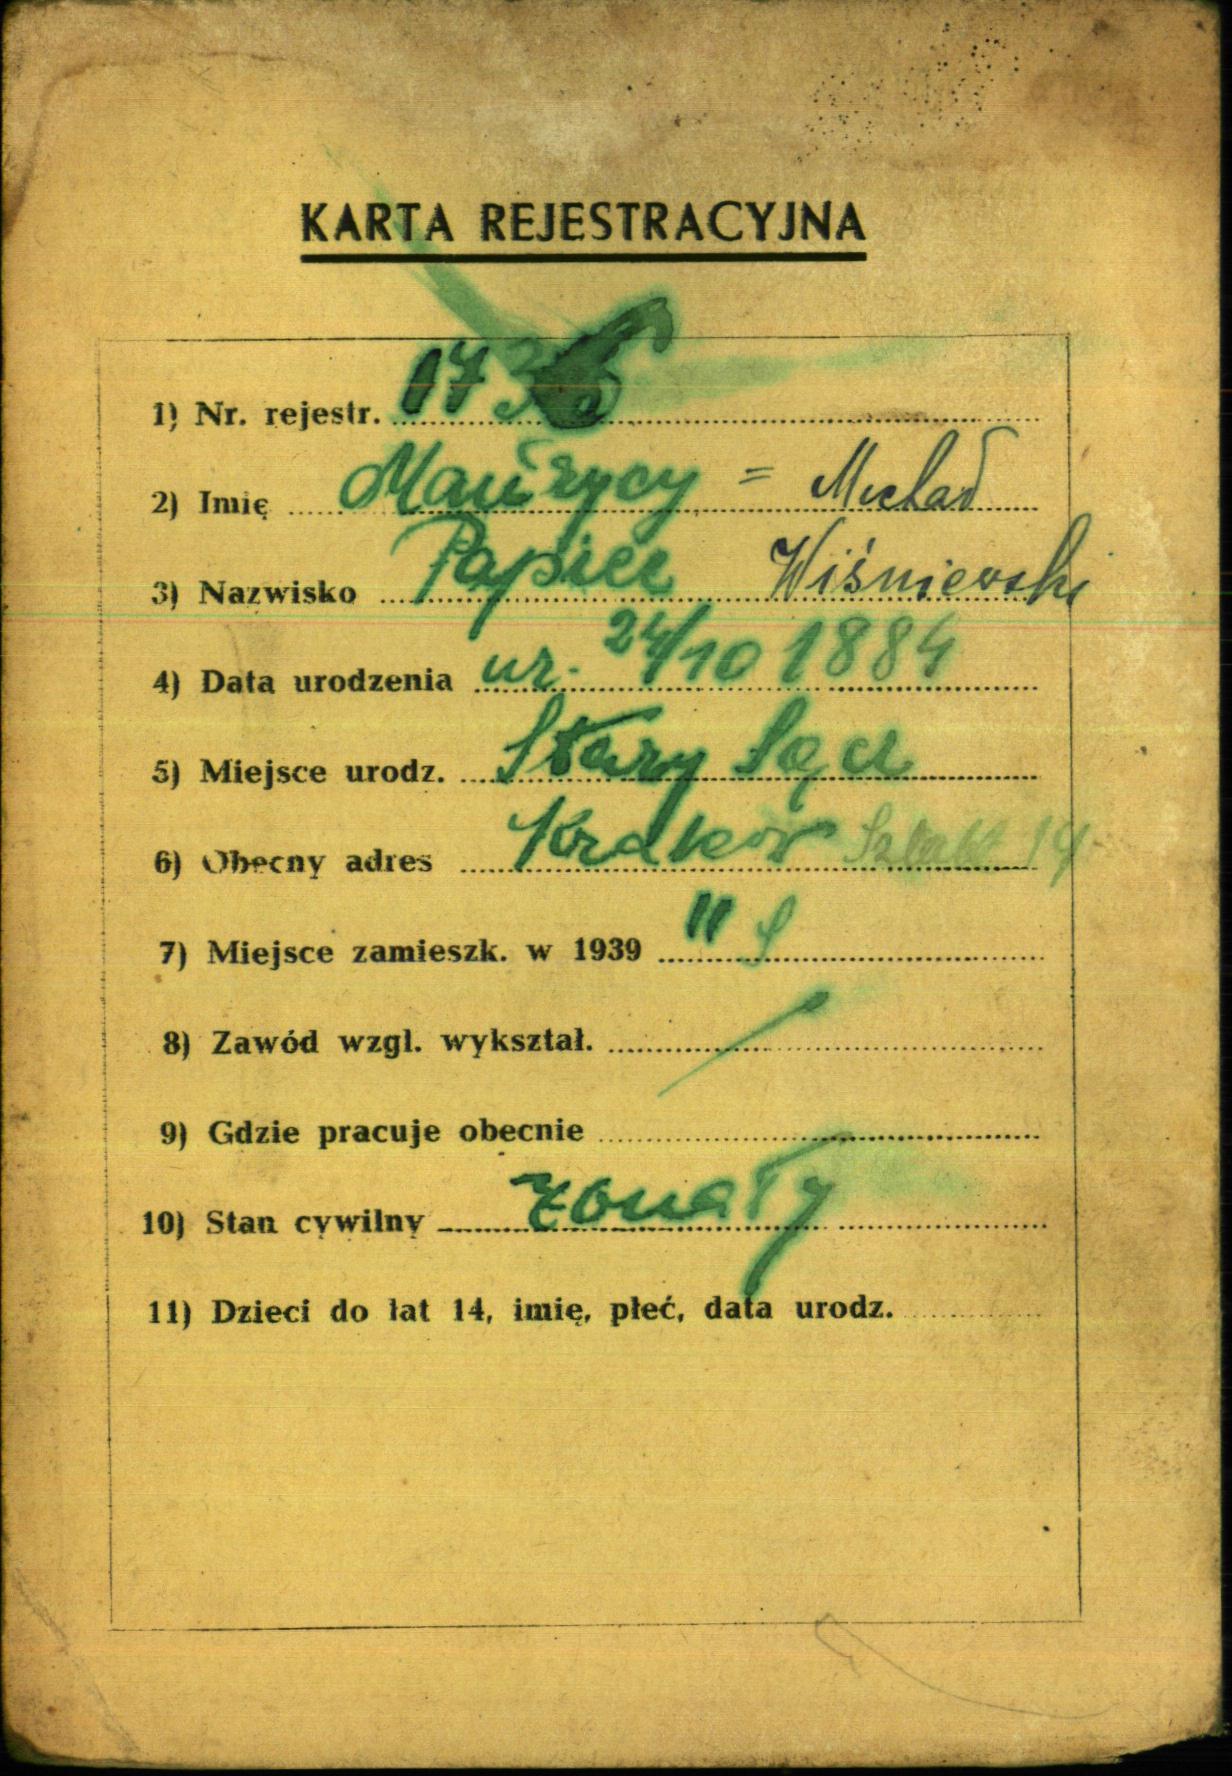 KARTA REJESTRACYJNA
1) Nr. rejestr. 17
2) Imię Maurycy = Michał
3) Nazwisko Papier Wiśniewski
4) Data urodzenia ur. 24/10 1884
5) Miejsce urodz. Stary Sącz
6) Obecny adres Kraków
7) Miejsce zamieszk. w 1939 "
8) Zawód wzgl. wykształ.
9) Gdzie pracuje obecnie
10) Stan cywilny żonaty
11) Dzieci do lat 14, imię, płeć, data urodz.